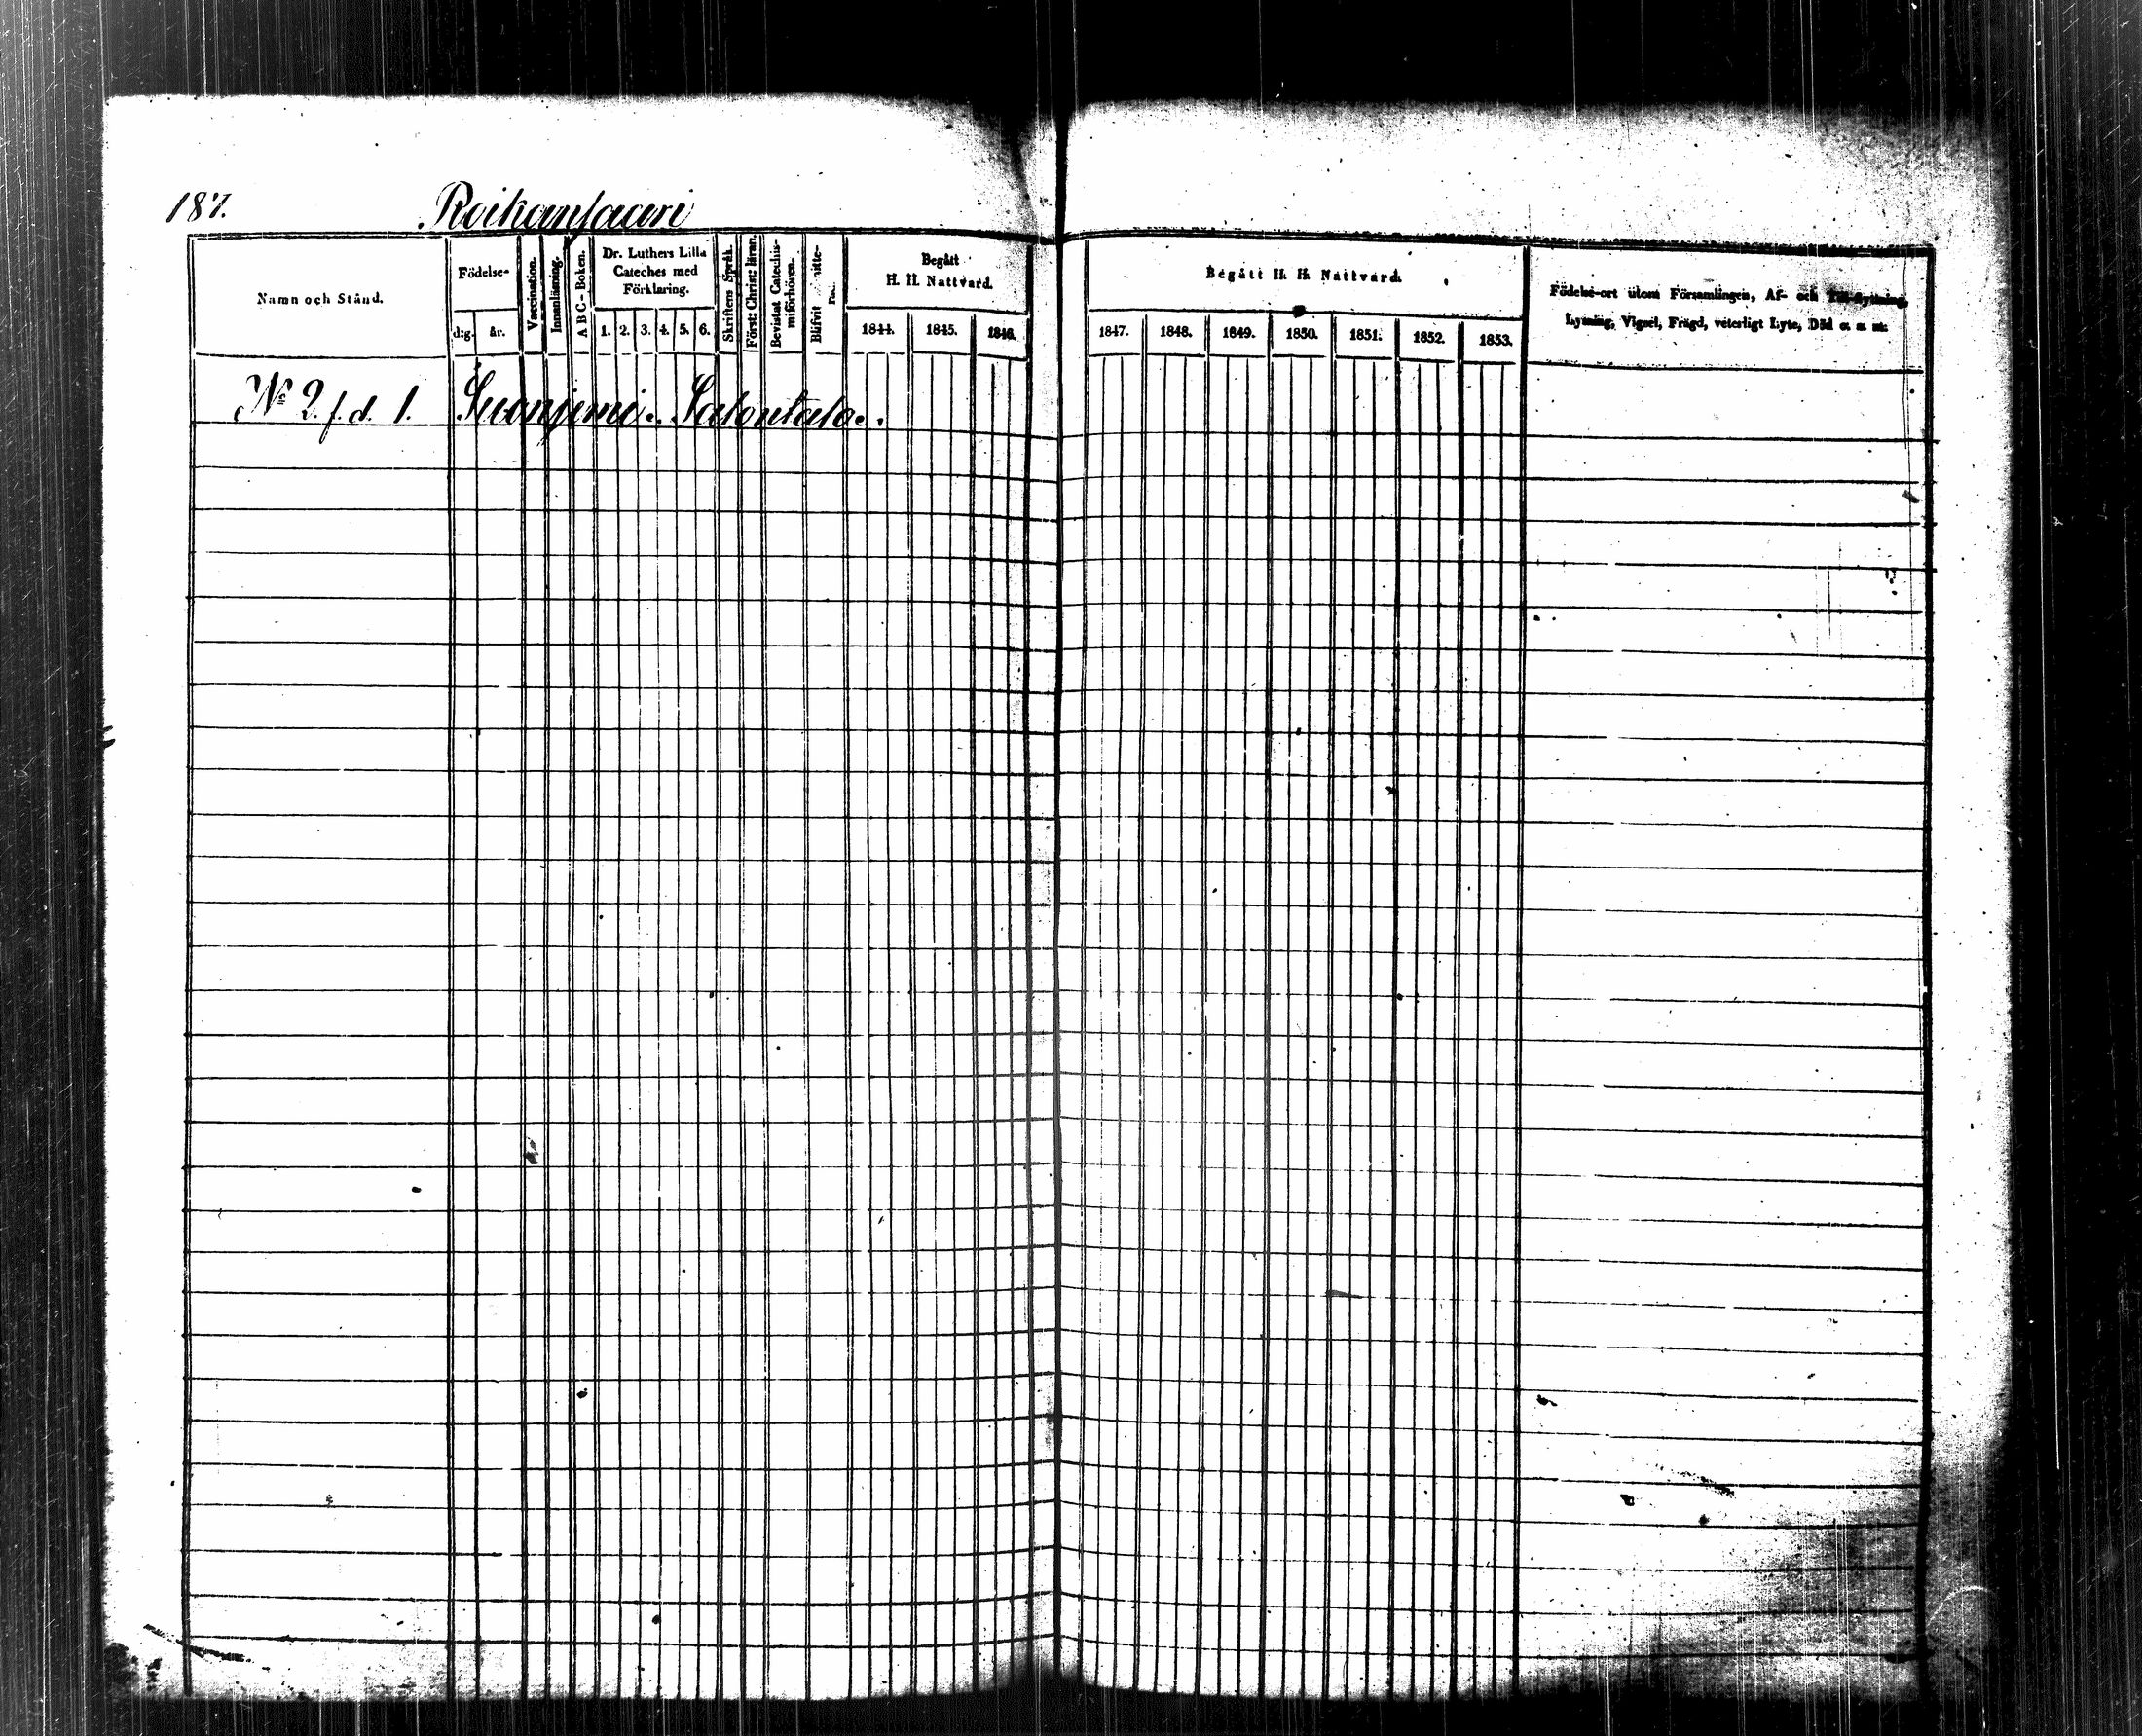 187.
Roikansaari
Namn och Stånd.
Födelse-
d:g.
år.
Vaccination.
Innanläsning.
A B C - Boken.
Dr. Luthers Lilla
Cateches med
Förklaring.
1. 2. 3. 4. 5. 6.
Skriftens Språk.
Först: Christ: läran.
Bevistat Catechis-
miförhören.
Blifvit
Begått
H. H. Nattvard.
1844. 1845. 1846.
Begått H. H. Nattvard.
1847. 1848. 1849. 1850. 1851. 1852. 1853.
Födelse-ort utom Församlingen, Af- och Till-flyttning,
Lysning, Vigsel, Frägd, veterligt Lyte, Död o. s. m.
No 2 f. d. 1. Suoniemi. Salontalo.